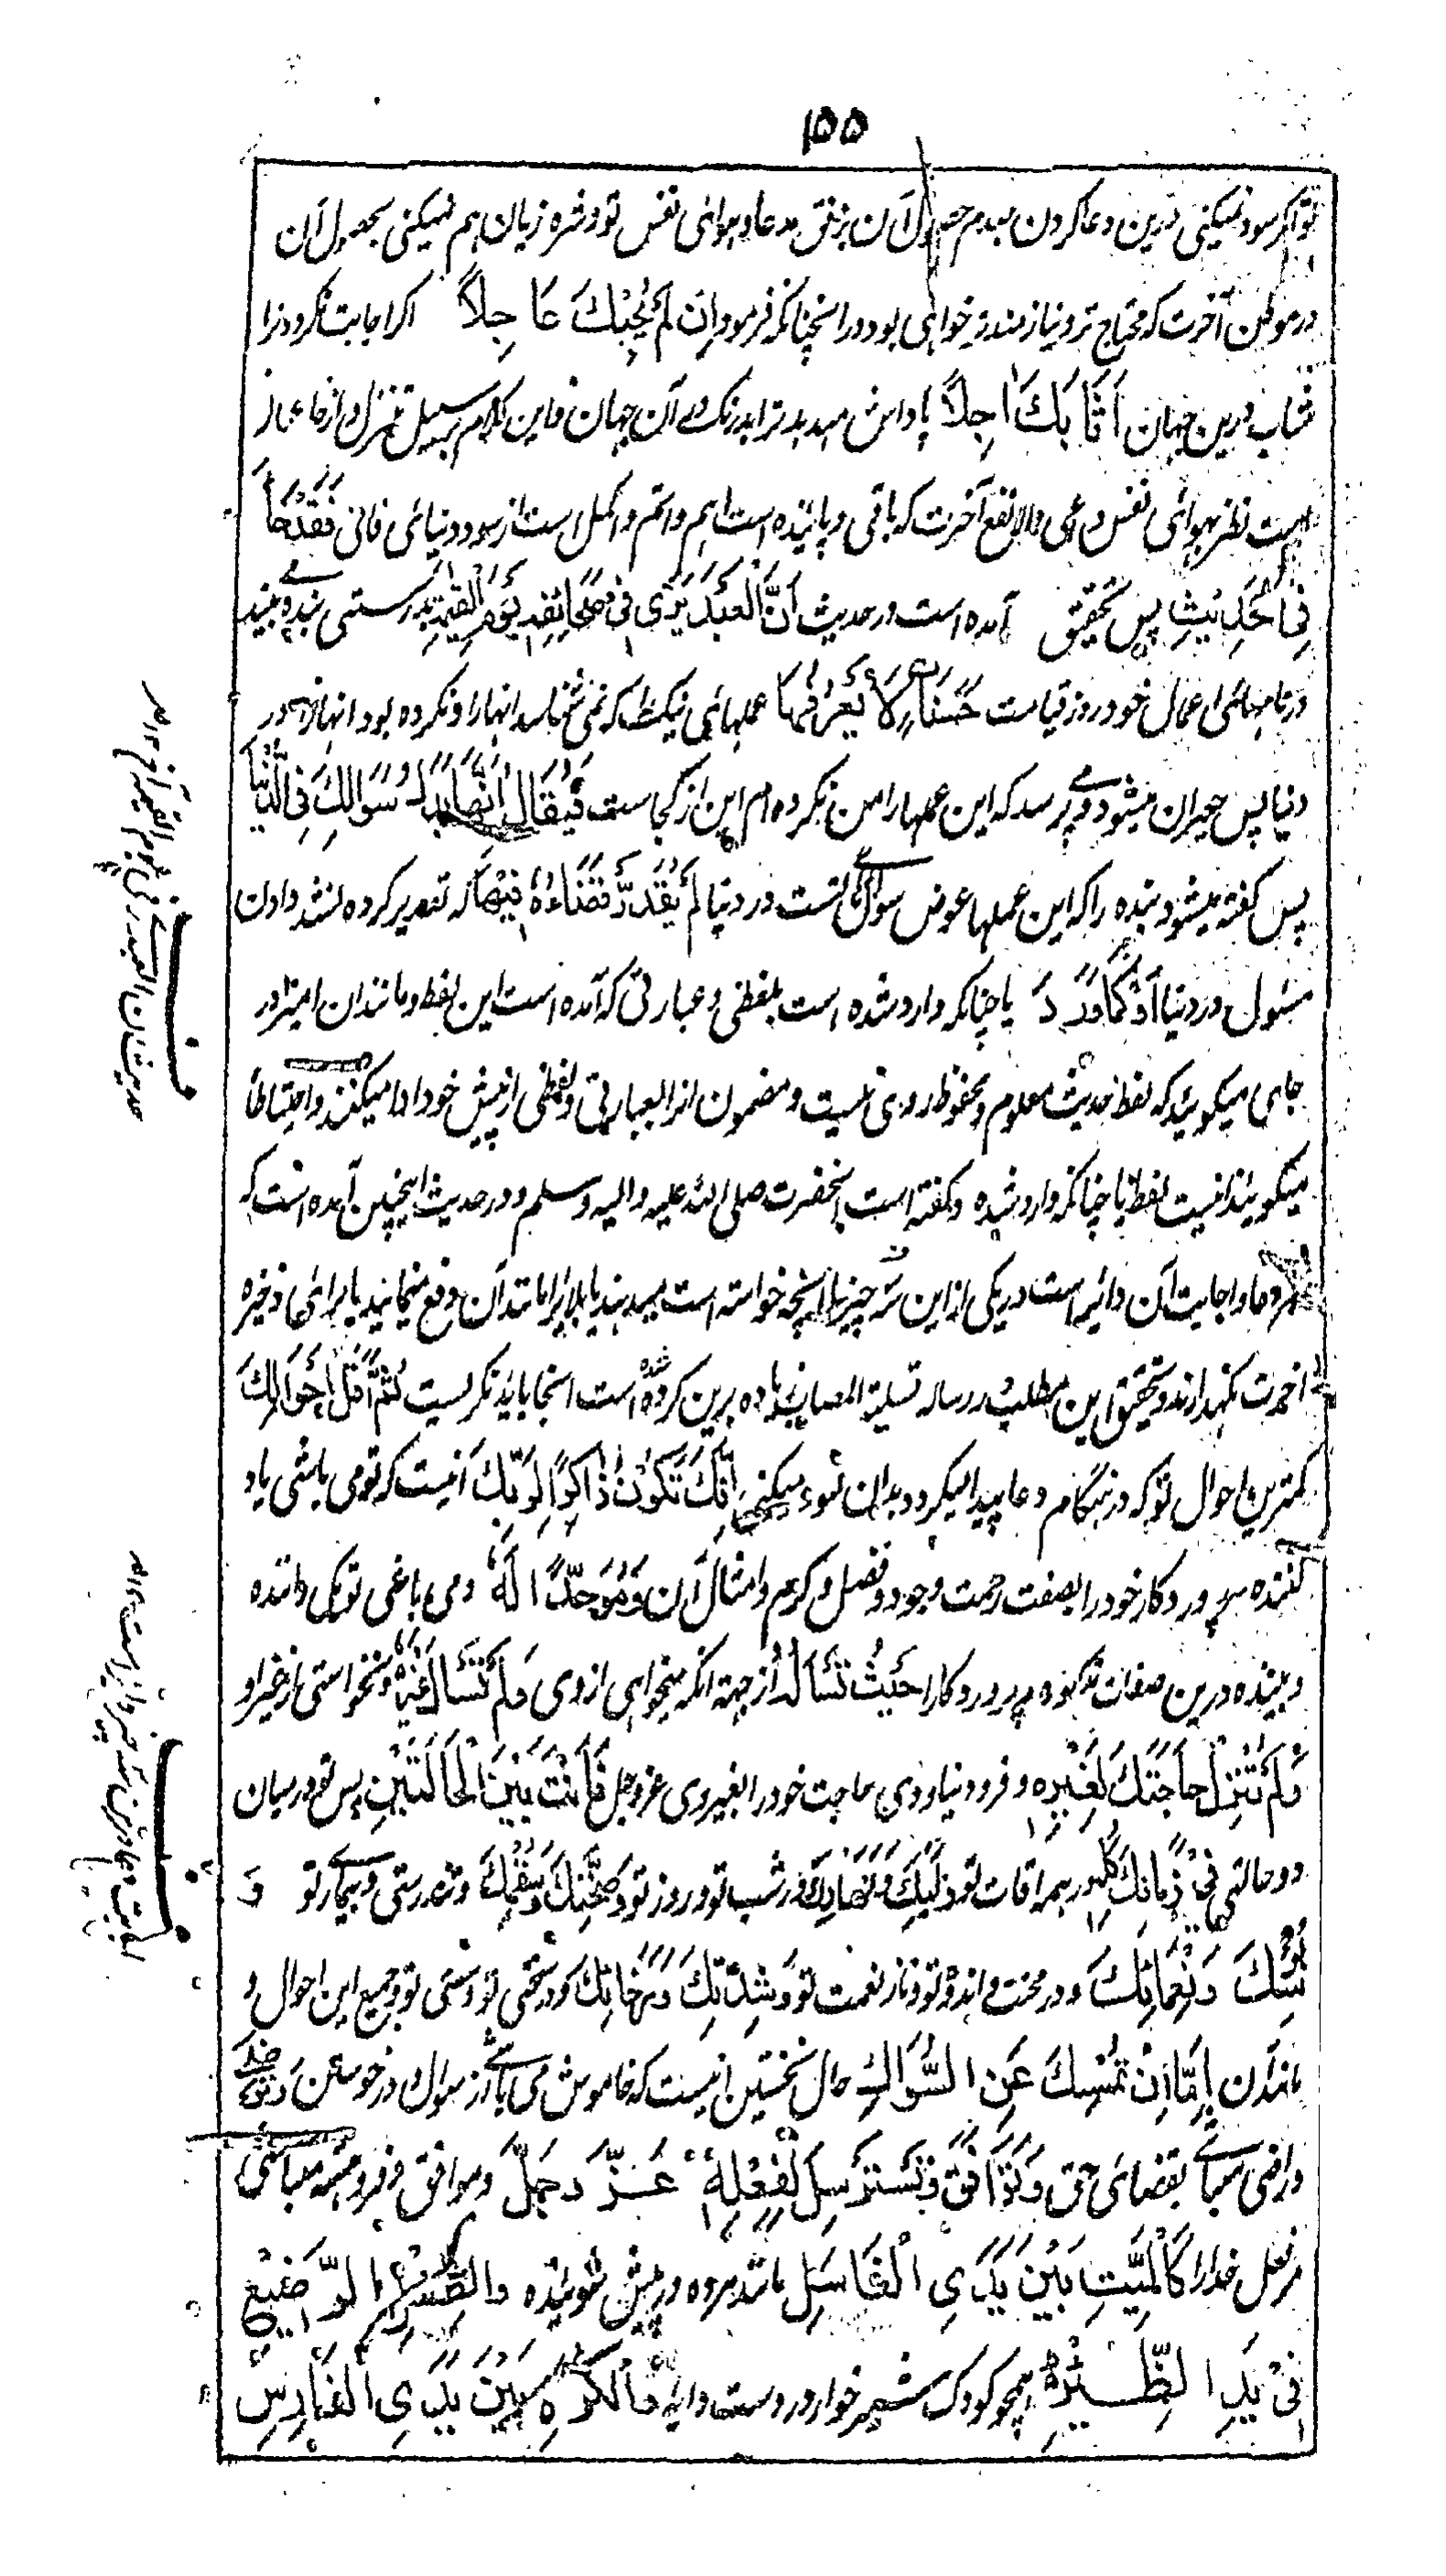 ۱۵۵
تو اگر سود نمیکنی درین دعا کردن بعدم حصول آن بر وفق مدعا و هوای نفس تو در شره زیان هم نمیکنی بحصول آن
در موطن آخرت که محتاج تر و نیازمندتر خواهی بود در آنچنانکه فرمود اِن لَمْ يُجِبْكَ عَاجِلاً اگر اجابت نکرد ترا
شتاب درین جهان اَثَابَكَ اٰجِلاً پاداش میدهد ترا بدرنگ در آن جهان و این کلام بر سبیل تنزل و ارخاء
است نظر بهوای نفس داعی والا نفع آخرت که باقی و پاینده است اهم و اتم و اکمل است از سود دنیای فانی فَقَدْ جَاءَ
فِي الْحَدِيْثِ پس تحقیق آمده است در حدیث اَنَّ الْعَبْدَ يَرٰى فِي صَحَائِفِهِ يَوْمَ الْقِيٰمَةِ بدرستی بنده می بیند
در نامهای اعمال خود روز قیامت حَسَنَاتٍ لَا يَعْرِفُهَا عملهای نیک را که نمی شناسد آنها را و نکرده بود آنها را در
دنیا پس حیران میشود و می پرسد که این عملها را من نکرده ام این از کجاست فَيُقَالُ اِنَّهَا بَدَلُ سُوَالِكَ فِي الدُّنْيَا
پس گفته میشود بنده را که این عملها عوض سوال تست در دنیا لَمْ يُقَدَّرْ قَضَاءُهُ فِيْهَا که تقدیر کرده نشد دادن
مسئول در دنیا اَوْ كَمَا وَرَدَ یا چنانکه وارد شده است بلفظی و عبارتی که آمده است این لفظ و مانند آن را در
جای میگویند که لفظ حدیث معلوم و محفوظ راوی نیست و مضمون آنرا بعبارتی و لفظی از پیش خود ادا میکنند و احتیاطاً
میگویند اینست لفظ یا چنانکه وارد شده و گفته است آنحضرت صلی الله علیه و آله وسلم و در حدیث اینچنین آمده است که
دعا و اجابت آن دائر است در یکی از این سه چیز یا آنچه خواسته است میدهند یا بلا را مانند آن دفع میکنند یا برای ذخیره
آخرت نگهدارند و تحقیق این مطلب در رساله تسلیة المصاب زیاده برین کرده شده است آنجا باید نگریست ثُمَّ اَقَلُّ اَحْوَالِكَ
کمترین احوال تو که در هنگام دعا پیدا میگردد و بدان سود میکنی اَنَّكَ تَكُوْنُ ذَاكِرًا لِرَبِّكَ آنست که تو می باشی یاد
کننده پروردگار خود را بصفت رحمت و جود و فضل و کرم و امثال آن وَمُوَحِّدًا لَهٗ و می باشی تو یکی داننده
و بیننده درین صفات مذکوره پروردگار را حَيْثُ تَسْاَلُهٗ از جهة آنکه میخواهی از وی وَلَمْ تَسْاَلْ غَيْرَهٗ و نخواستی از غیر او
وَلَمْ تُنْزِلْ حَاجَتَكَ لِغَيْرِهِ و فرود نیاوردی حاجت خود را بغیر وی عز و جل فَاَنْتَ بَيْنَ الْحَالَتَيْنِ پس تو درمیان
دو حالتی فِي زَمَانِكَ كُلِّهِ در همه اوقات تو وَلَيْلِكَ وَنَهَارِكَ و در شب تو و روز تو وَصِحَّتِكَ وَسُقْمِكَ و تندرستی و بیماری تو وَ
بُؤْسِكَ وَنَعْمَائِكَ و در محنت و اندوه تو و ناز و نعمت تو وَشِدَّتِكَ وَرَخَائِكَ و در سختی تو و سستی تو و جمیع این احوال و
مانند آن اِمَّا اِنْ تُمْسِكَ عَنِ السُّوَالِ حال نخستین آنست که خاموش می باشی از سوال و در خواستن وَتَرْضٰى
و راضی میباشی بقضای حق وَتُوَافِقَ وَتَسْتَرْسِلَ لِفِعْلِهٖ عَزَّ وَجَلَّ و موافق و فروهشته میباشی
مر فعل خدا را كَالْمَيِّتِ بَيْنَ يَدَيِ الْغَاسِلِ مانند مرده در پیش شوینده وَالطِّفْلِ الرَّضِيْعِ
فِي يَدِ الظِّئْرِ همچو کودک شیر خوار در دست دایه وَالْكُرَةِ بَيْنَ يَدَيِ الْفَارِسِ